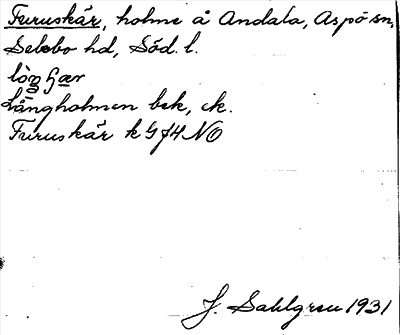 Furuskär, holme å Andala, Aspö sn,
Selebo hd, Söd. l.
Långholmen bek, ek.
Furuskär k G J4 NO
J. Sahlgren 1931